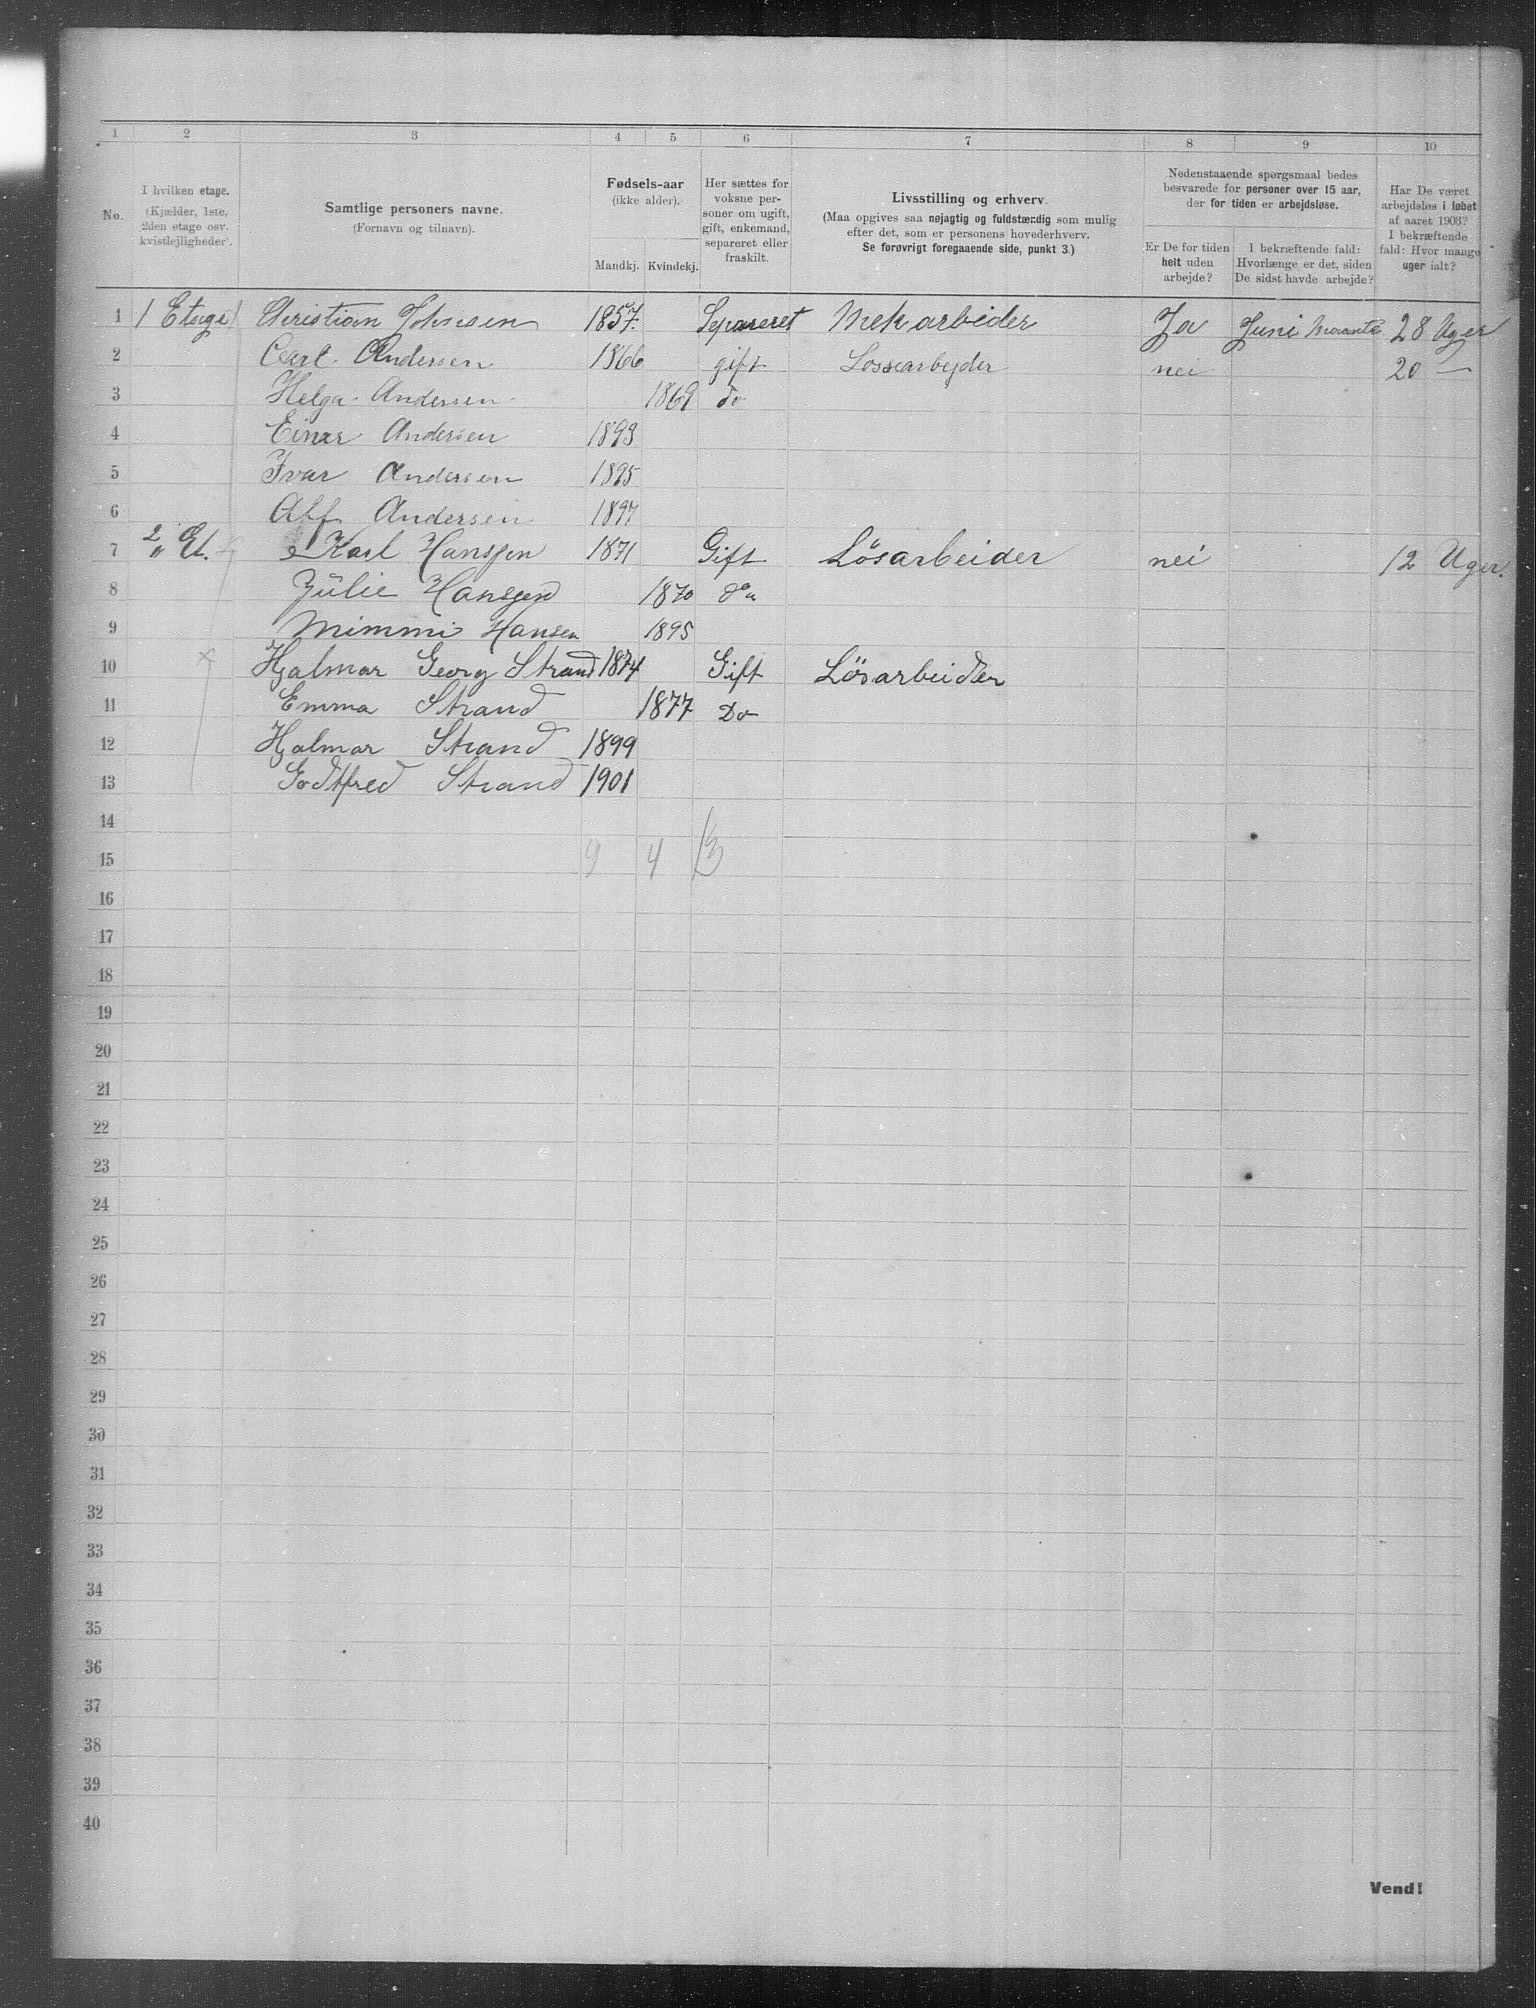 1 2 3 4 5 6 7 8 9 10
No.
I hvilken etage.
(Kjælder, 1ste,
2den etage osv.
kvistlejligheder).
Samtlige personers navne.
(Fornavn og tilnavn).
Fødsels-aar
(ikke alder).
Mandkj. Kvindekj.
Her sættes for
voksne per-
soner om ugift,
gift, enkemand,
separeret eller
fraskilt.
Livsstilling og erhverv.
(Maa opgives saa nøjagtig og fuldstændig som mulig
efter det, som er personens hovederhverv.
Se forøvrigt foregaaende side, punkt 3.)
Nedenstaaende spørgsmaal bedes
besvarede for personer over 15 aar,
der for tiden er arbejdsløse.
Er De for tiden
helt uden
arbejde?
I bekræftende fald:
Hvorlænge er det, siden
De sidst havde arbejde?
Har De været
arbejdsløs i løbet
af aaret 1903?
I bekræftende
fald: Hvor mange
uger ialt?
1 1 Etage Christian Johnsen 1857. Separeret Mekarbeider Ja Juni Maante 28 Uger
2 Carl Andersen 1866 gift Lossearbejder nei 20 —
3 Helga Andersen 1869 do
4 Einar Andersen 1893
5 Ivar Andersen 1895
6 Alf Andersen 1897
7 2 Et. Karl Hanssen 1871 Gift Lösarbeider nei 12 Uger.
8 Julie Hanssen 1870 do
9 Mimmi Hansen 1895
10 Hjalmar Georg Strand 1874 Gift Lösarbeider
11 Emma Strand 1877 Do
12 Hjalmar Strand 1899
13 Godtfred Strand 1901
14
15 9 4 13
16
17
18
19
20
21
22
23
24
25
26
27
28
29
30
31
32
33
34
35
36
37
38
39
40
Vend!